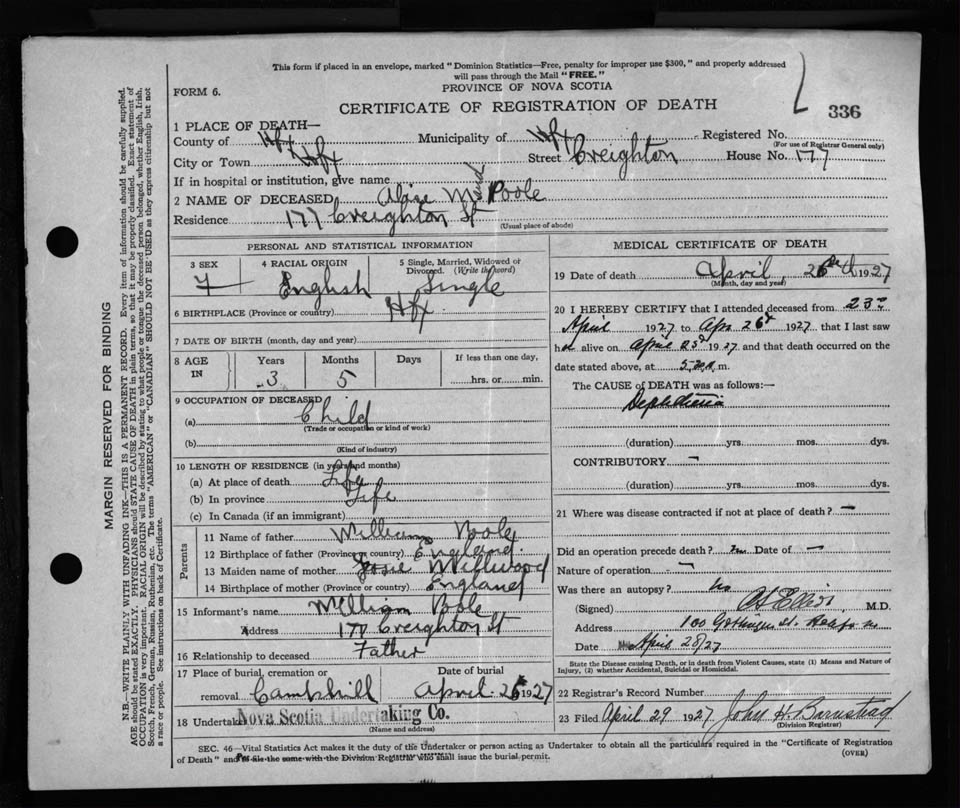 This form if placed in an envelope, marked " Dominion Statistics—Free, penalty for improper use $300," and properly addressed
will pass through the Mail "FREE."
FORM 6.
PROVINCE OF NOVA SCOTIA
CERTIFICATE OF REGISTRATION OF DEATH
336
1 PLACE OF DEATH—
County of Hfx Municipality of Hfx Registered No.
(For use of Registrar General only)
City or Town Hfx Street Creighton House No. 177
If in hospital or institution, give name
2 NAME OF DECEASED Alice M Poole
Residence 177 Creighton St
(Usual place of abode)
PERSONAL AND STATISTICAL INFORMATION
3 SEX
F
4 RACIAL ORIGIN
English
5 Single, Married, Widowed or Divorced. (Write the word)
Single
6 BIRTHPLACE (Province or country) Hfx
7 DATE OF BIRTH (month, day and year)
8 AGE IN
Years Months Days If less than one day,
3 5 hrs. or min.
9 OCCUPATION OF DECEASED
(a) Child
(Trade or occupation or kind of work)
(b)
(Kind of industry)
10 LENGTH OF RESIDENCE (in years and months)
(a) At place of death Life
(b) In province Life
(c) In Canada (if an immigrant)
Parents
11 Name of father William Poole
12 Birthplace of father (Province or country) England.
13 Maiden name of mother Josie
14 Birthplace of mother (Province or country) England
15 Informant's name William Poole
Address 177 Creighton St
16 Relationship to deceased Father
17 Place of burial, cremation or removal Camphill
Date of burial
April 26 1927
18 Undertaker Nova Scotia Undertaking Co.
(Name and address)
MEDICAL CERTIFICATE OF DEATH
19 Date of death April, 26th 1927
(Month, day and year)
20 I HEREBY CERTIFY that I attended deceased from 23rd
April 1927 to Apr 26th 1927 that I last saw
h alive on April 23rd 1927 and that death occurred on the
date stated above, at m.
The CAUSE OF DEATH was as follows:—
Diphtheria
(duration) yrs. mos. dys.
CONTRIBUTORY —
(duration) yrs. mos. dys.
21 Where was disease contracted if not at place of death? —
Did an operation precede death? no Date of —
Nature of operation —
Was there an autopsy? no
(Signed) M.D.
Address 100 Gottingen St.
Date April 28/27
State the Disease causing Death, or in death from Violent Causes, state (1) Means and Nature of
Injury, (2) whether Accidental, Suicidal or Homicidal.
22 Registrar's Record Number
23 Filed April 29 1927 John H. Barnstead
(Division Registrar)
SEC. 46—Vital Statistics Act makes it the duty of the Undertaker or person acting as Undertaker to obtain all the particulars required in the "Certificate of Registration
of Death" and to file the same with the Division Registrar who shall issue the burial permit.
(OVER)
MARGIN RESERVED FOR BINDING
N.B.—WRITE PLAINLY WITH UNFADING INK—THIS IS A PERMANENT RECORD. Every item of information should be carefully supplied.
AGE should be stated EXACTLY. PHYSICIANS should STATE CAUSE OF DEATH in plain terms, so that it may be properly classified. Exact statement of
OCCUPATION is very important. RACIAL ORIGIN will be described by stating to what people or tongue the deceased person belonged, whether English, Irish,
Scotch, French, German, Russian, Ruthenian, etc. The terms "AMERICAN" or "CANADIAN" SHOULD NOT BE USED as they express citizenship but not
a race or people. See instructions on back of Certificate.